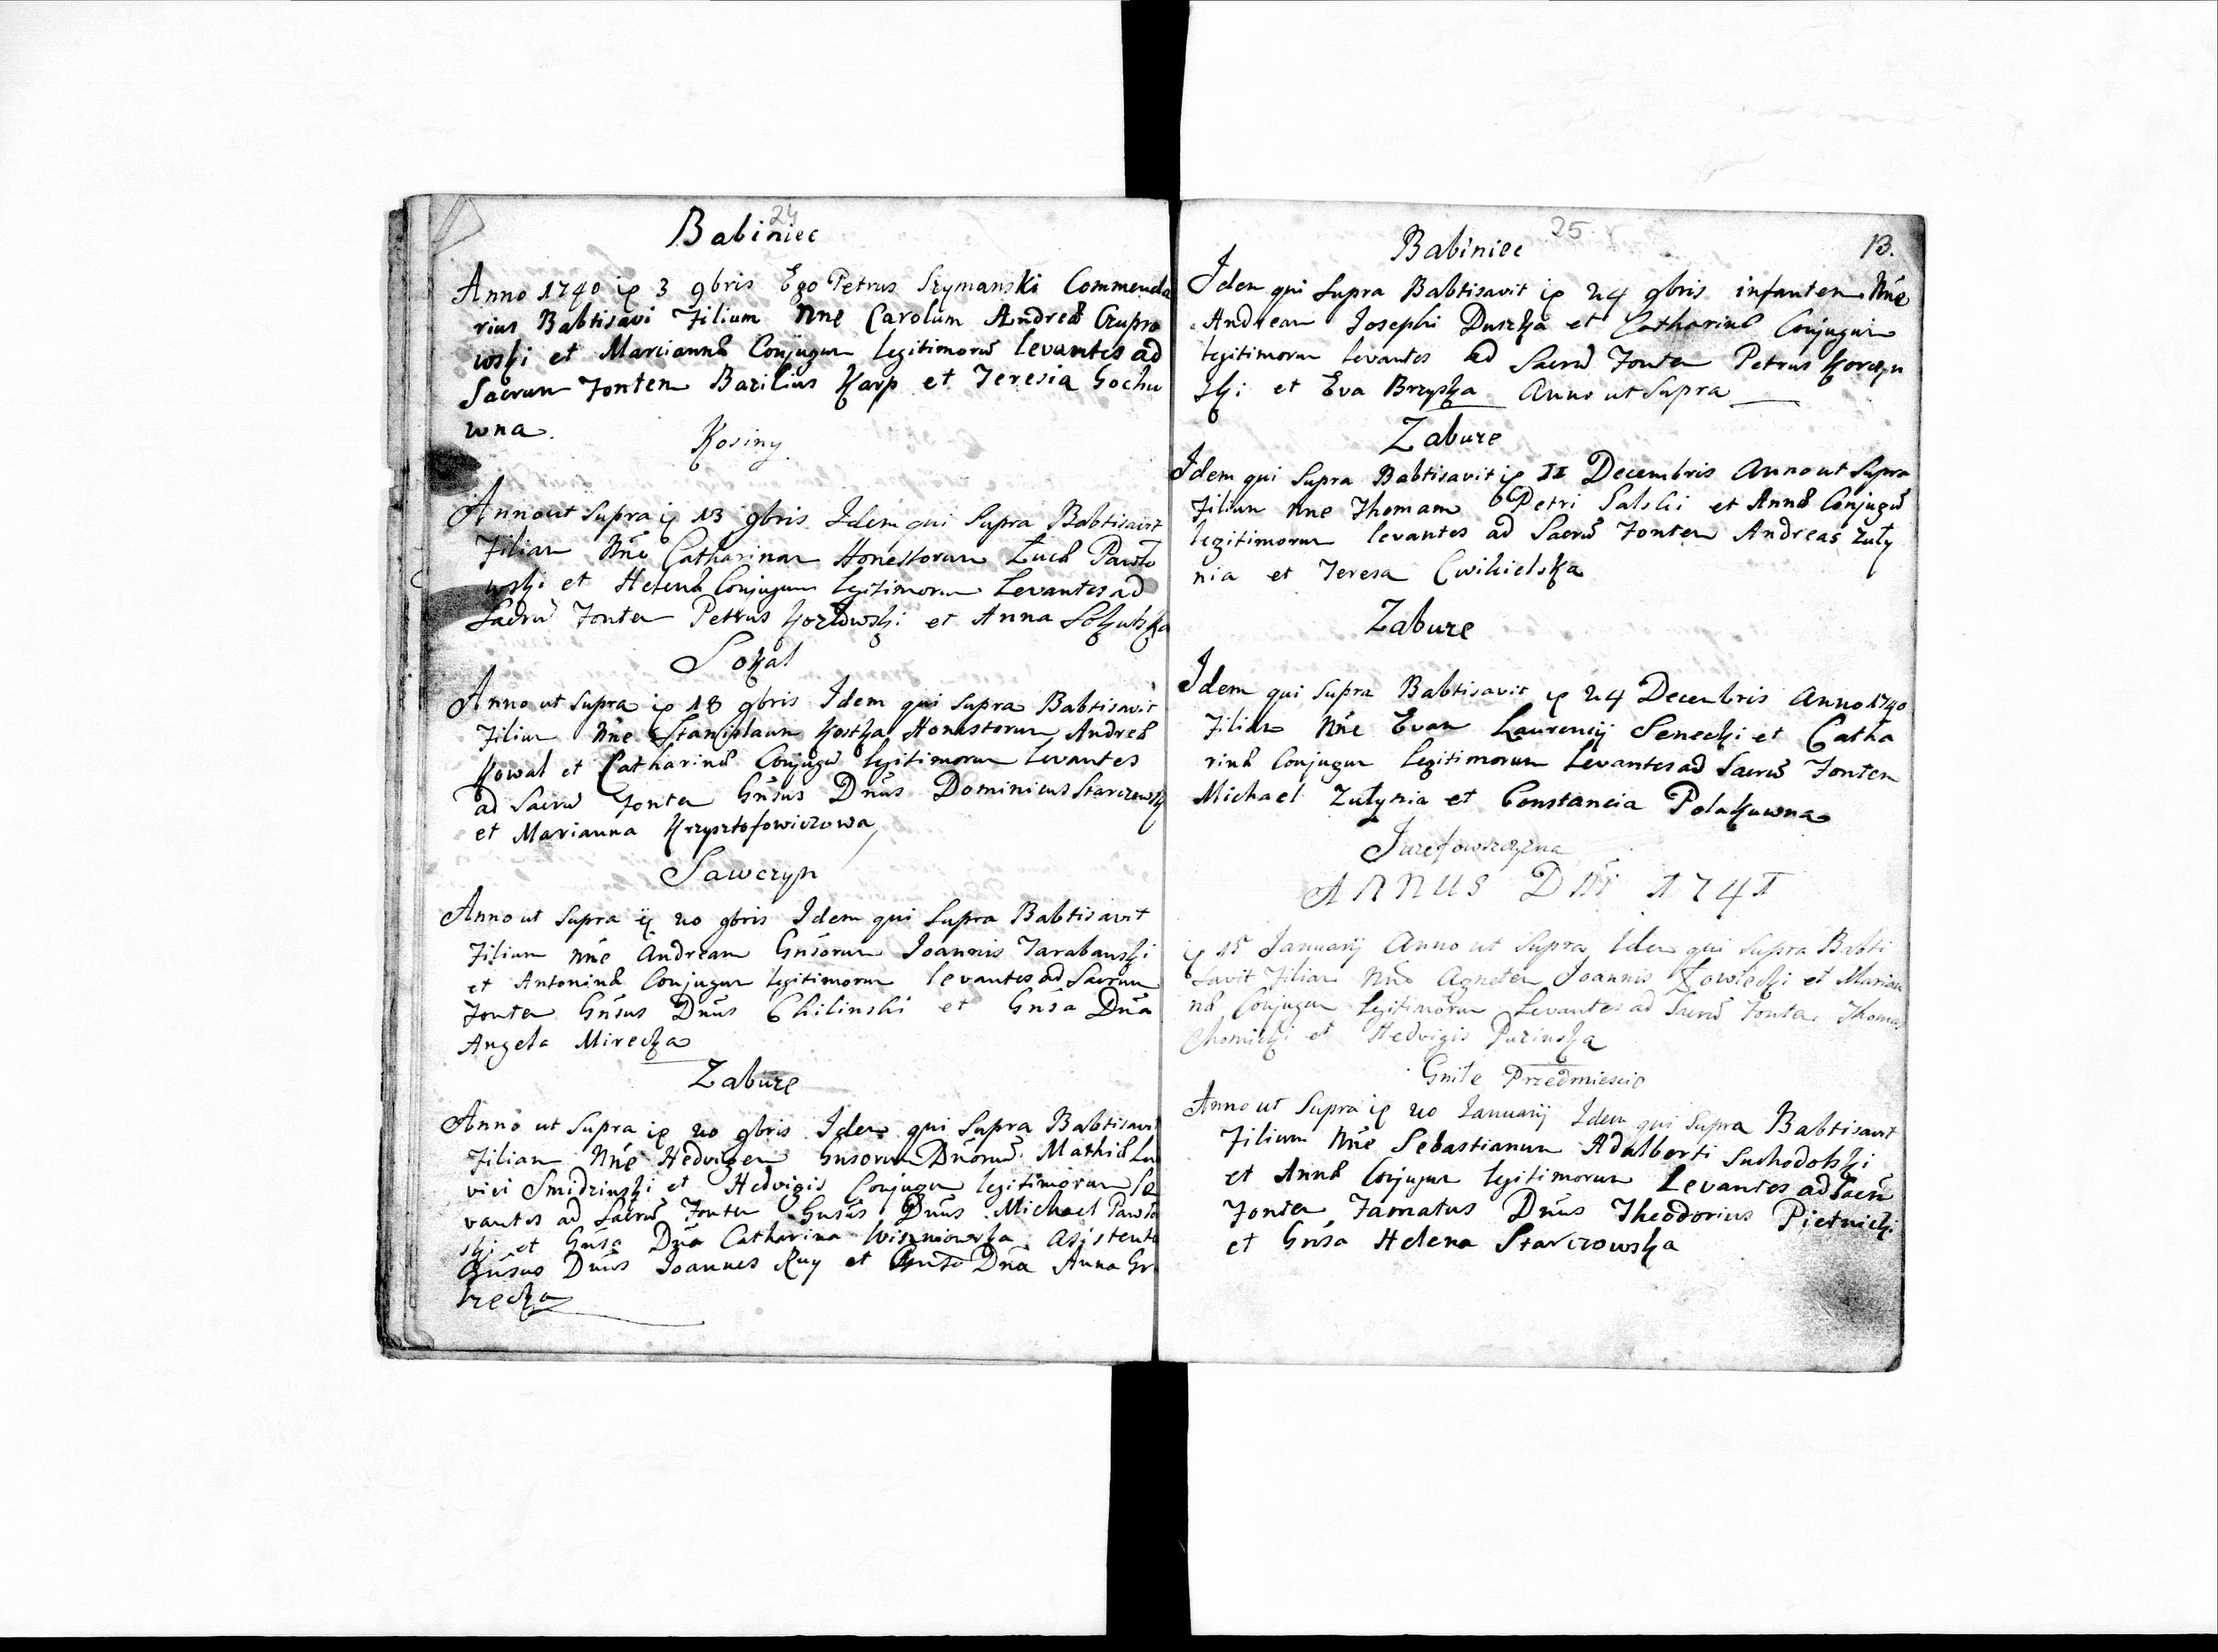 24
Babiniec
Anno 1740 ip 3 9bris Ego Petrus Szymanski Commenda
rius Babtisavi Filium Nne Carolum Andreæ Czupro
wski et Mariannæ Conjugum legitimorũ levantes ad
Sacrum Fontem Bazilius Karp et Teresia Gochu
wna.
Kosiny
Anno ut Supra ip 13 9bris Idem qui Supra Babtisavit
Filiam Nne Catharinam Honestorum Lucæ Pawlo
wski et Helenæ Conjugum legitimorum Levantes ad
Sacrũ Fontem Petrus Kozlowski et Anna Sokulska
Sokal
Anno ut Supra ip 18 9bris Idem qui Supra Babtisavit
Filium Nne Stanislaum Kostka Honestorum Andreæ
Kowal et Catharinæ Conjugũ legitimorum levantes
ad Sacrũ Fontem Gnsus Dnus Dominicus Starczewsk
et Marianna Krzysztofowiczowa
Sawczyn
Anno ut Supra ip 20 9bris Idem qui Supra Babtisavit
Filium Nne Andream Gnsorum Joannis Tarabanski
et Antoninæ Conjugum legitimorum levantes ad Sacrum
Fontem Gnsus Dnus Chilinski et Gnsa Dna
Angela Mirecka
Zabuze
Anno ut Supra ip 20 9bris Idem qui Supra Babtisavit
Filiam Nne Hedvigem Gnsorum Dnorũ Mathiæ Lu
vici Smidzinski et Hedvigis Conjugum legitimorum le
vantes ad Sacrũ Fontem Gnsus Dnus Michael Pawlo
ski et Gnsa Dna Catharina Wiszniowska Asistente
Gnsus Dnus Joannes Ruy et Gnsa Dna Anna Gr
trecka
25
13.
Babiniec
Idem qui Supra Babtisavit ip 24 9bris infantem Nne
Andream Josephi Duszka et Catharinæ Conjugum
legitimorum levantes ad Sacrũ Fontem Petrus Korczyn
ski et Eva Brzyska Anno ut Supra
Zabuze
Idem qui Supra Babtisavit ip II Decembris Anno ut Supra
Filium Nne Thomam Petri Salski et Annæ Conjugũ
legitimorum levantes ad Sacrũ Fontem Andreas Zuty
nia et Teresa Cwikielska
Zabuze
Idem qui Supra Babtisavit ip 24 Decembris Anno 1740
Filiam Nne Evam Laurencij Senecki et Catha
rinæ Conjugum legitimorum levantes ad Sacrũ Fontem
Michael Zutynia et Constancia Polakuwna
Jurefowszczyzna
ANNUS DNI 1741
ip 15 Januarij Anno ut Supra Idem qui Supra Babti
savit Filiam Nne Agnetem Joannis Łowiecki et Marian
næ Conjugum legitimorum Levantes ad Sacrũ Fontem Thomas
Chomicki et Hedvigis Puzinska
Gnile Przedmiescie
Anno ut Supra ip 20 Januarij Idem qui Supra Babtisavit
Filium Nne Sebastianum Adalberti Suchodolski
et Annæ Conjugum legitimorum Levantes ad Sacrũ
Fontem Famatus Dnus Theodorius Pietnicki
et Gnsa Helena Starczowska